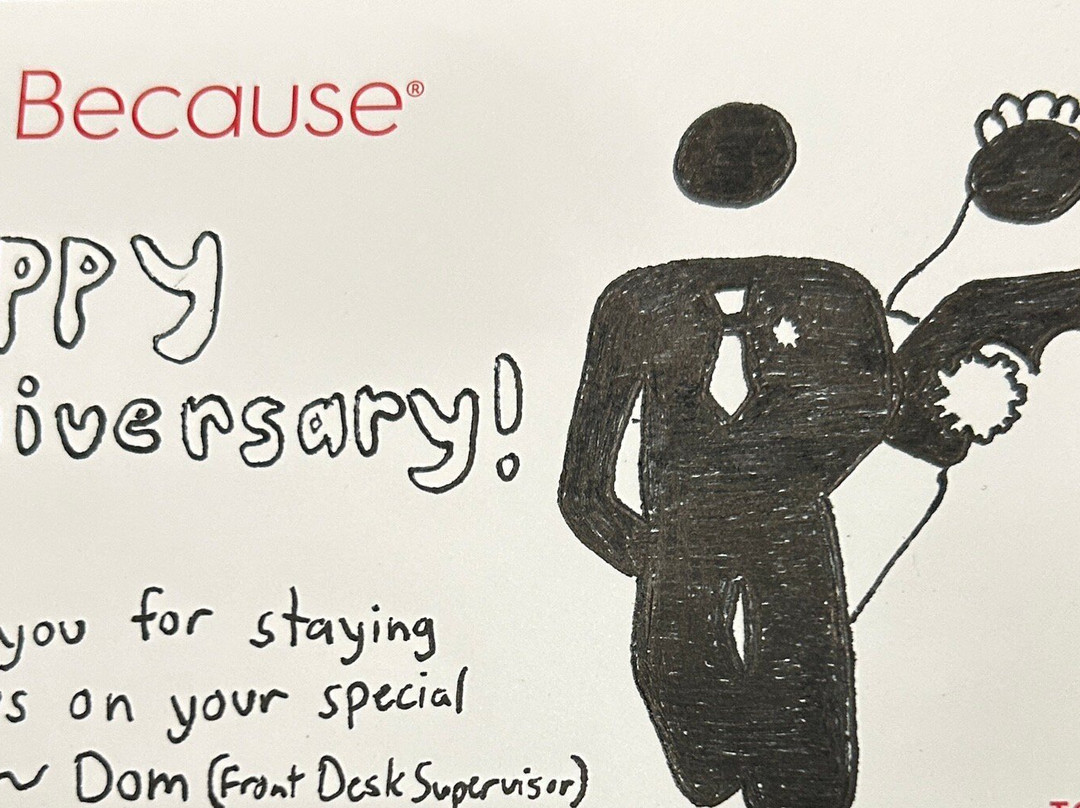 Because®
ppy
iversary!
you for staying
s on your special
~ Dom (Front Desk Supervisor)